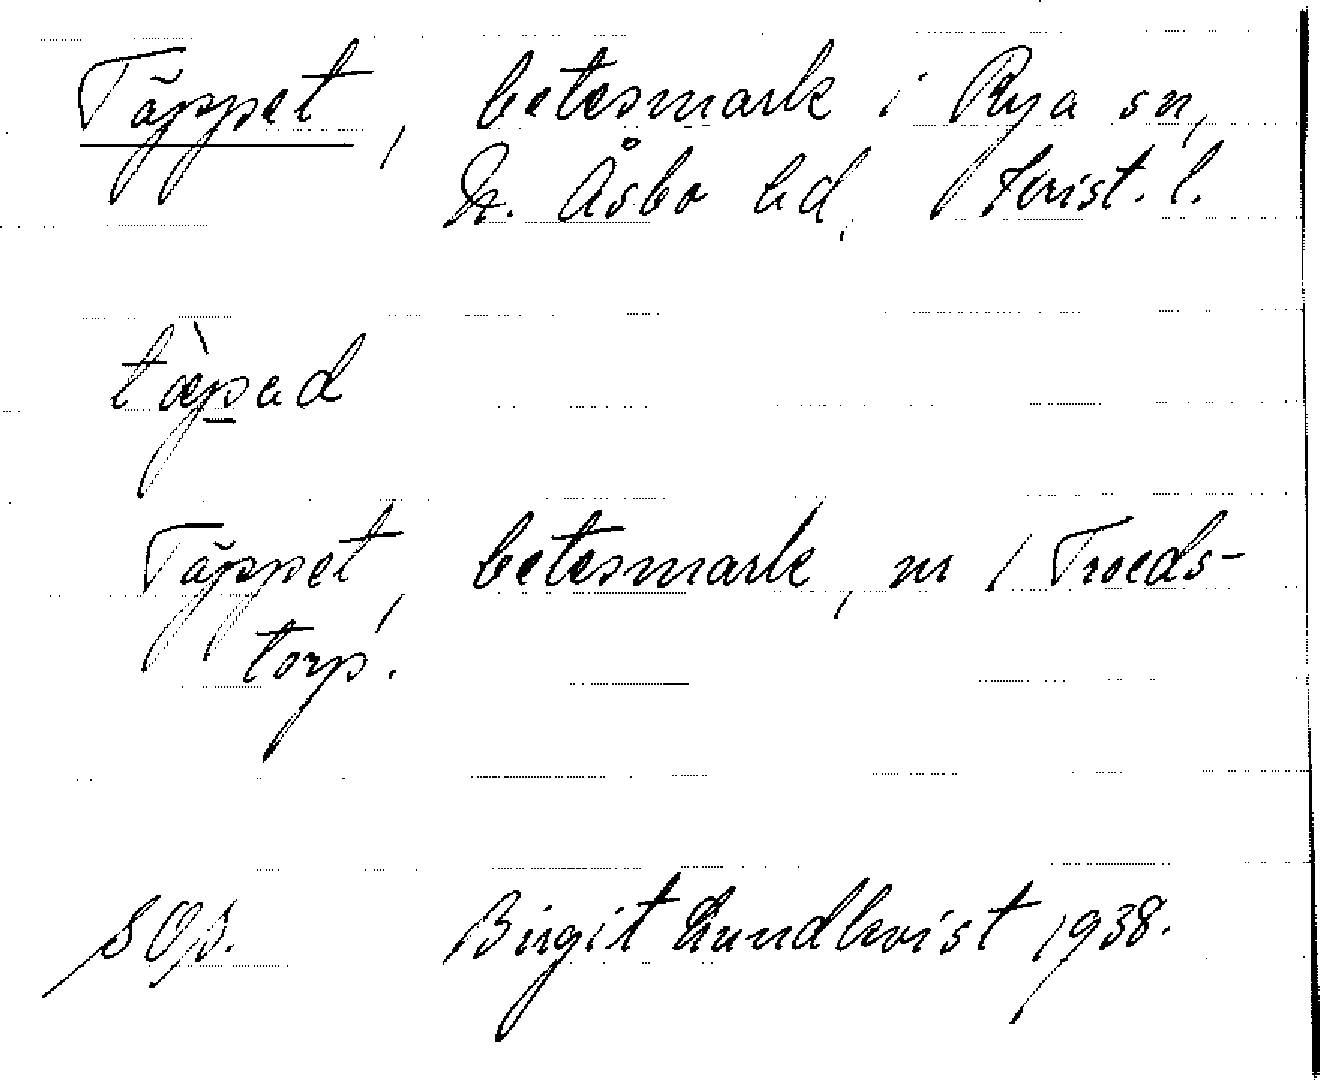 Täppet, betesmark i Rya sn,
N. Åsbo hd, Krist. l.
tæ̀p̲ad
Täppet, betesmark, nr 1 Troeds-
torp.
Birgit Lundkvist 1938.